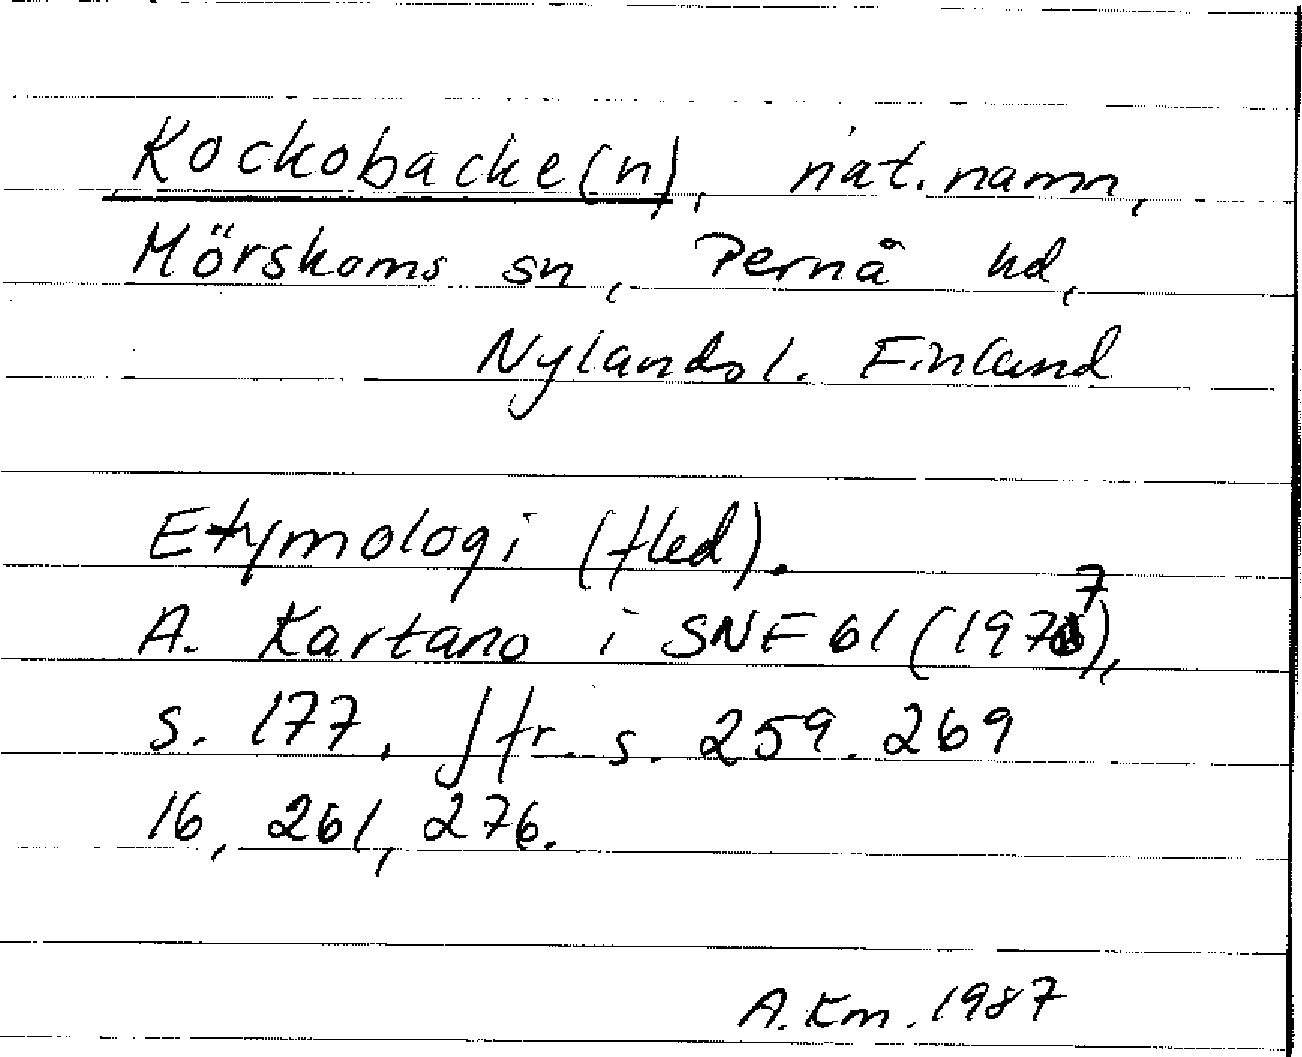 Kockobacke(n), nat.namn,
Mörskoms sn, Pernå hd,
Nylandsl. Finland
Etymologi (fled).
A. Kartano i SNF 61 (1977),
s. 177, Jfr. s. 259. 269
16, 261, 276.
A.Km. 1987